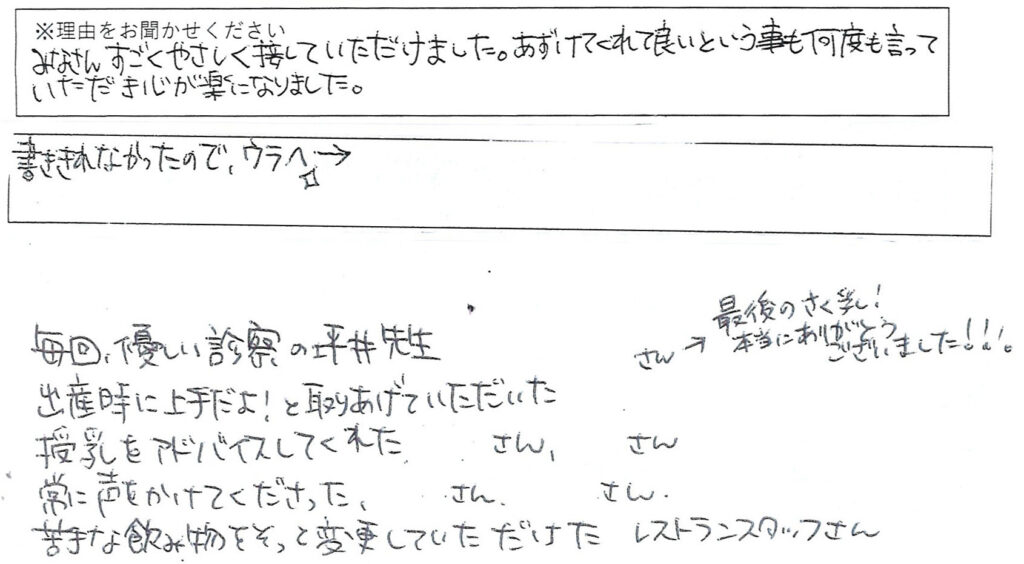 ※理由をお聞かせください
みなさんすごくやさしく接していただけました。あずけてくれて良いという事も何度も言って
いただき心が楽になりました。
書ききれなかったので、ウラへ→
最後のさく乳!
さん→ 本当にありがとう
ございました!!!。
毎回、優しい診察の平井先生
出産時に上手だよ!と取りあげていただいた
授乳をアドバイスしてくれた さん、 さん
常に声をかけてくださった、 さん、 さん.
苦手な飲み物をそっと変更していただけた レストランスタッフさん